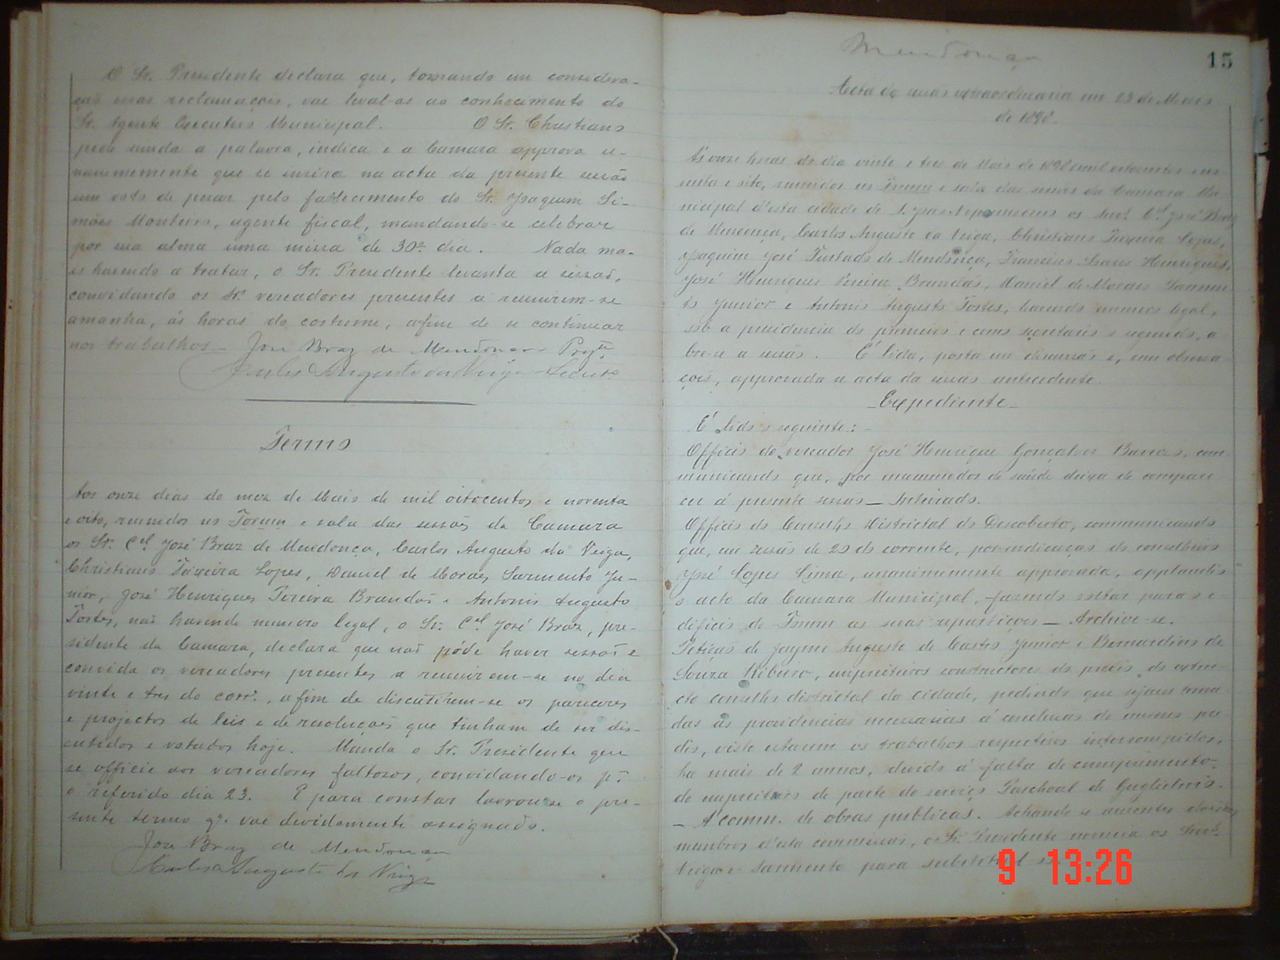 O Sr. Presidente declara que, tomando em considera-
ção essas reclamações, vae leval-as ao conhecimento do
Sr. Agente Executivo Municipal. O Sr. Christiano
pede ainda a palavra, indica e a Camara approva u-
nanimemente que se insira na acta da presente sessão
um voto de pezar pelo fallecimento do Sr. Joaquim Si-
mões Monteiro, agente fiscal, mandando-se celebrar
por sua alma uma missa de 30º dia. Nada ma-
is havendo a tratar, o Sr. Presidente levanta a sessão,
convidando os Srs. vereadores presentes a reunirem-se
amanha, ás horas do costume, afim de se continuar
nos trabalhos— José Braz de Mendonça
Carlos Augusto da Veiga
Termo
Aos onze dias do mez de Maio de mil oitocentos e noventa
e oito, reunidos no Forum e sala das sessões da Camara
os Sr. Cel. José Braz de Mendonça, Carlos Augusto da Veiga,
Christiano Teixeira Lopes, Daniel de Moraes Sarmento Ju-
nior, José Henriques Pereira Brandão e Antonio Augusto
Fortes, não havendo numero legal, o Sr. Cel. José Braz, pre-
sidente da Camara, declara que não póde haver sessão e
convida os vereadores presentes a reunirem-se no dia
vinte e tres do corre., afim de discutirem-se os pareceres
e projectos de leis e de resoluções que tinham de ser dis-
cutidos e votados hoje. Manda o Sr. Presidente que
se officie aos vereadores faltosos, convidando-os pª
o referido dia 23. E para constar lavrou-se o pre-
sente termo q. vae devidamente assignado.
José Braz de Mendonça
Carlos Augusto da Veiga
Mendonça
15
Acta da sessão extraordinaria em 23 de Maio
de 1898.
Ás onze horas do dia vinte e tres de Maio de 1898 mil oitocentos e no-
venta e oito, reunidos no Forum e sala das sessões da Camara Mu-
nicipal d'esta cidade de S. João Nepomuceno os Snrs. Cel. José Braz
de Mendonça, Carlos Augusto da Veiga, Christiano Teixeira Lopes,
Joaquim José Furtado de Mendonça, Francisco Soares Henriques,
José Henriques Pereira Brandão, Daniel de Moraes Sarmen-
to Junior e Antonio Augusto Fortes, havendo numero legal,
sob a presidencia do primeiro e como secretario o segundo, a-
bre-se a sessão. É lida, posta em discussão e, sem observa-
ções, approvada a acta da sessão antecedente.
Expediente
É lido o seguinte:
Officio do vereador José Henrique Gonçalves Barros, com-
municando que, por incommodos de saúde deixa de compare-
cer á presente sessão — Inteirado.
Officio do Conselho Districtal do Descoberto, communicando
que, em sessão de 20 do corrente, por indicação do conselheiro
José Lopes Lima, unanimemente approvada, applaudio
o acto da Camara Municipal, fazendo voltar para o e-
dificio do Forum as suas repartições — Archive-se.
Petição de Jayme Augusto de Castro Junior e Bernardino de
Souza Ribeiro, empreiteiros constructores do predio do extin-
cto conselho districtal da cidade, pedindo que sejam toma-
das as providencias necessarias á conclusão do mesmo pre-
dio, visto estarem os trabalhos respectivos interrompidos,
ha mais de 2 annos, devido á falta de cumprimento
do empreiteiro de parte do serviço Paschoal de Guglielmo.
— Á comm. de obras publicas. Achando-se ausentes
membros d'esta commissão, o Sr. Presidente nomeia os Snrs.
Veiga e Sarmento para substituil-os
9 13:26